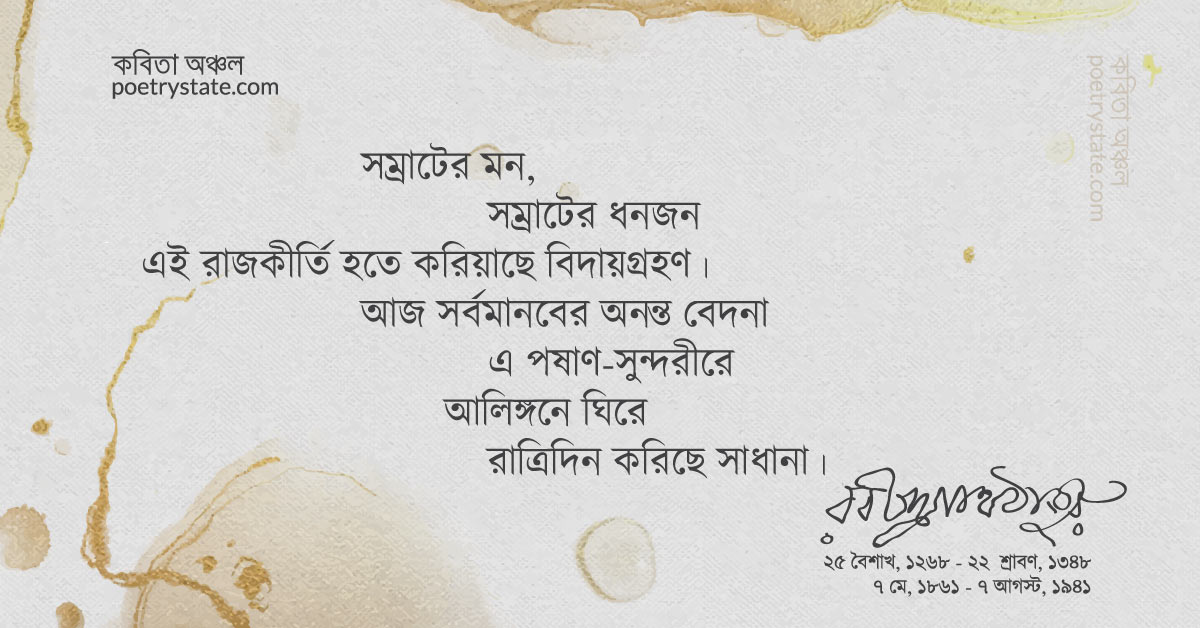 কবিতা অঞ্চল
poetrystate.com
কবিতা অঞ্চল
poetrystate.com
সম্রাটের মন,
সম্রাটের ধনজন
এই রাজকীর্তি হতে করিয়াছে বিদায়গ্রহণ।
আজ সর্বমানবের অনন্ত বেদনা
এ পষাণ-সুন্দরীরে
আলিঙ্গনে ঘিরে
রাত্রিদিন করিছে সাধানা।
রবীন্দ্রনাথ ঠাকুর
২৫ বৈশাখ, ১২৬৮ - ২২ শ্রাবণ, ১৩৪৮
৭ মে, ১৮৬১ - ৭ আগস্ট, ১৯৪১